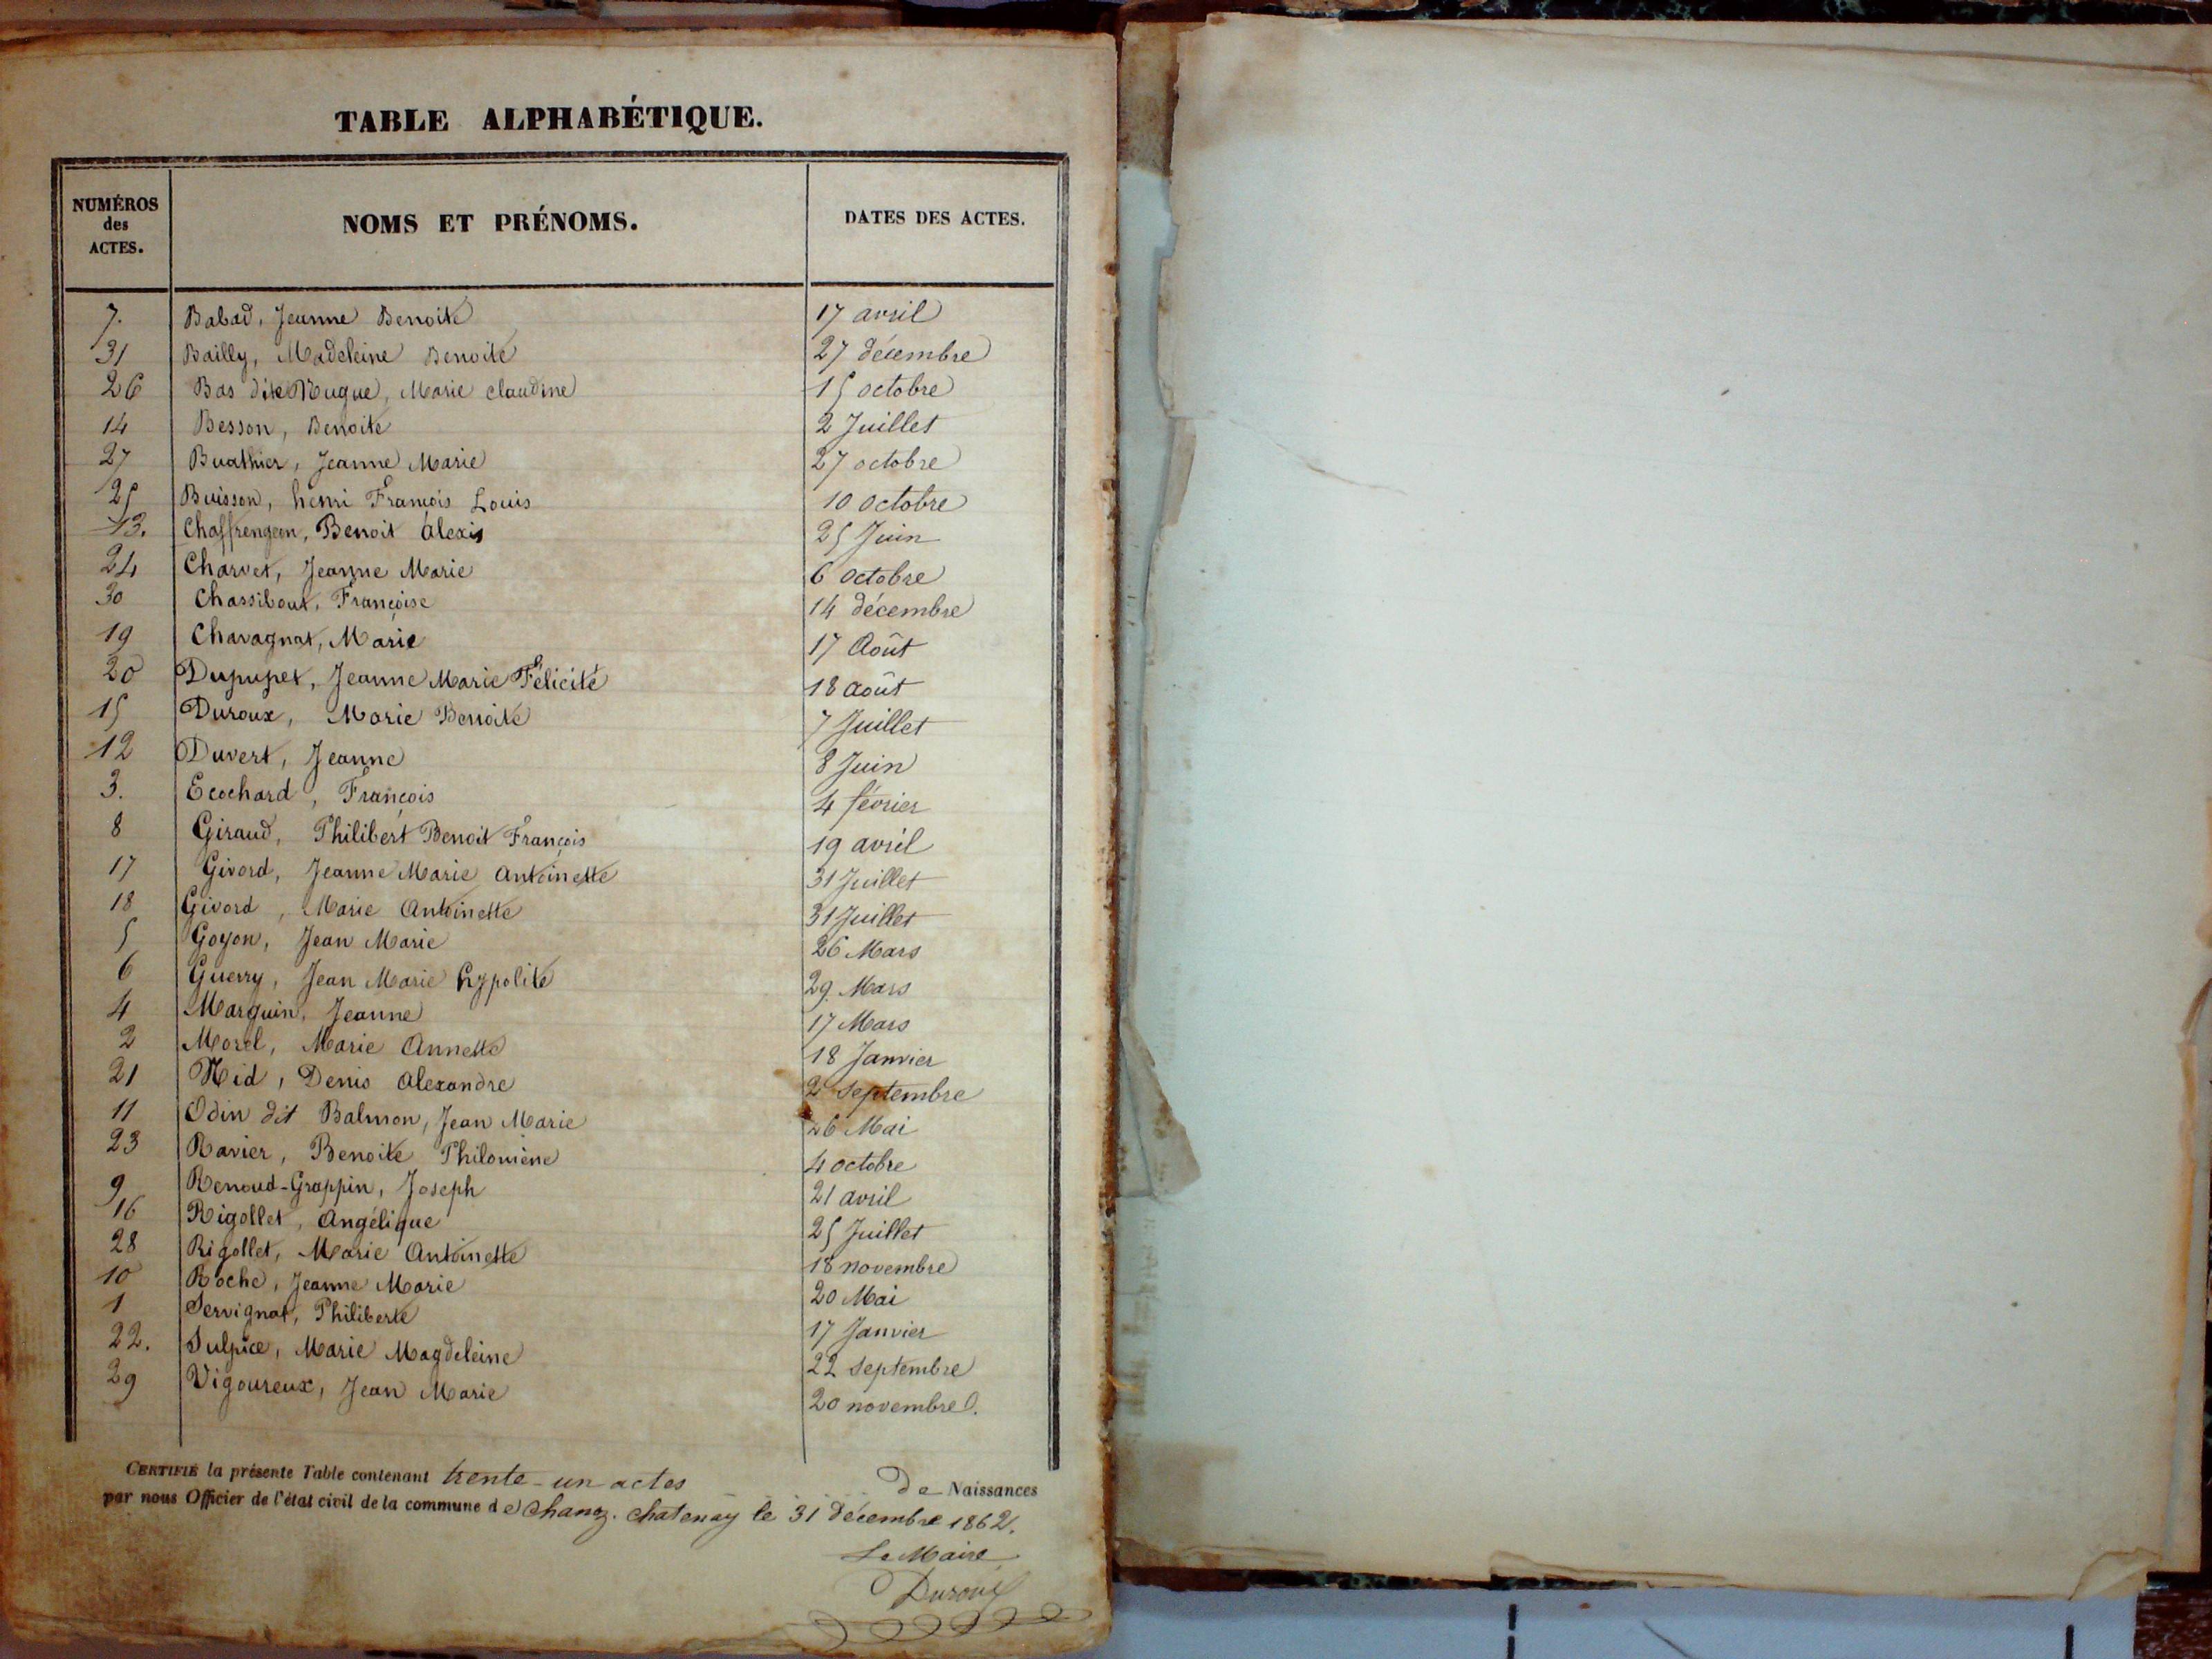 TABLE ALPHABÉTIQUE.
NUMÉROS des ACTES. NOMS ET PRÉNOMS. DATES DES ACTES.
7. Babad, Jeanne Benoite 17 avril
31 Bailly, Madeleine Benoite 27 décembre
26 Bas dite Nugue, Marie claudine 15 octobre
14 Besson, Benoite 2 Juillet
27 Buathier, Jeanne Marie 27 octobre
25 Buisson, henri François Louis 10 octobre
13. Chaffrengeon, Benoit alexis 25 Juin
24 Charvet, Jeanne Marie 6 octobre
30 Chassibout, Françoise 14 décembre
19 Chavagnat, Marie 17 Août
20 Dupupet, Jeanne Marie Félicité 18 août
15 Duroux, Marie Benoite 7 Juillet
12 Duvert, Jeanne 8 Juin
3. Ecochard, François 4 février
8 Giraud, Philibert Benoit François 19 avril
17 Givord, Jeanne Marie antoinette 31 Juillet
18 Givord, Marie Antoinette 31 Juillet
5 Goyon, Jean Marie 26 Mars
6 Guerry, Jean Marie hypolite 29 Mars
4 Marguin, Jeanne 17 Mars
2 Morel, Marie Annette 18 Janvier
21 Nid, Denis alexandre 2 septembre
11 Odin dit Balmon, Jean Marie 26 Mai
23 Ravier, Benoite Philomène 4 octobre
9 Renoud-Grappin, Joseph 21 avril
16 Rigollet, Angélique 25 Juillet
28 Rigollet, Marie Antoinette 18 novembre
10 Roche, Jeanne Marie 20 Mai
1 Servignat, Philiberte 17 Janvier
22. Sulpice, Marie Magdeleine 22 septembre
29 Vigoureux, Jean Marie 20 novembre.
CERTIFIÉ la présente Table contenant trente-un actes de Naissances
par nous Officier de l'état civil de la commune de Chanoz-chatenay le 31 décembre 1862.
Le Maire
Duroux